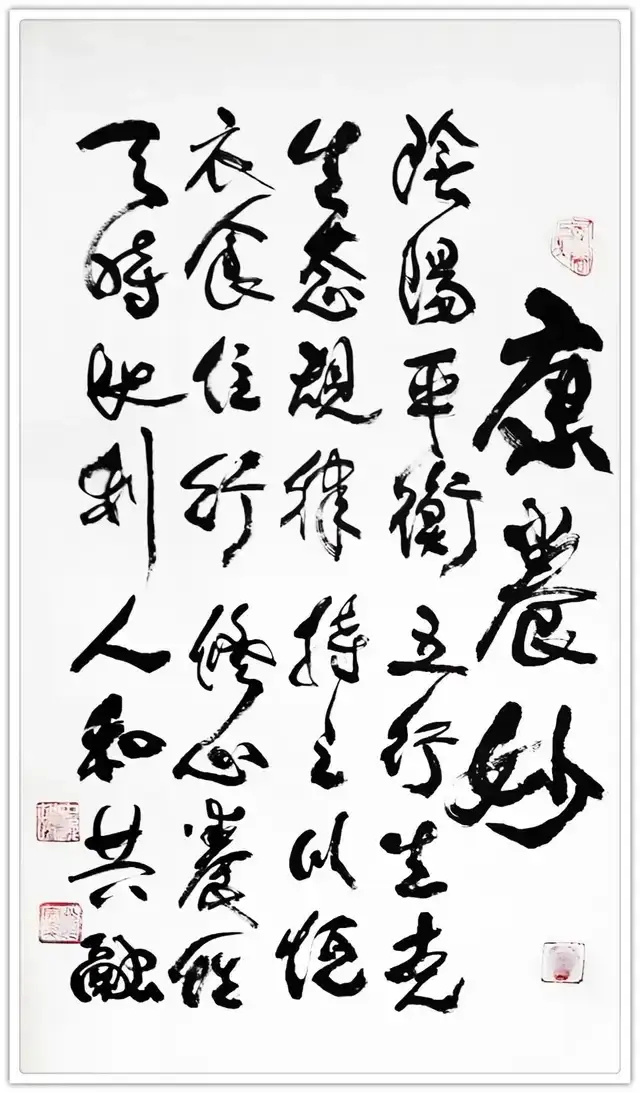 康養妙
陰陽平衡五行生克
生态规律持之以恒
衣食住行修心養性
天時地利人和共融